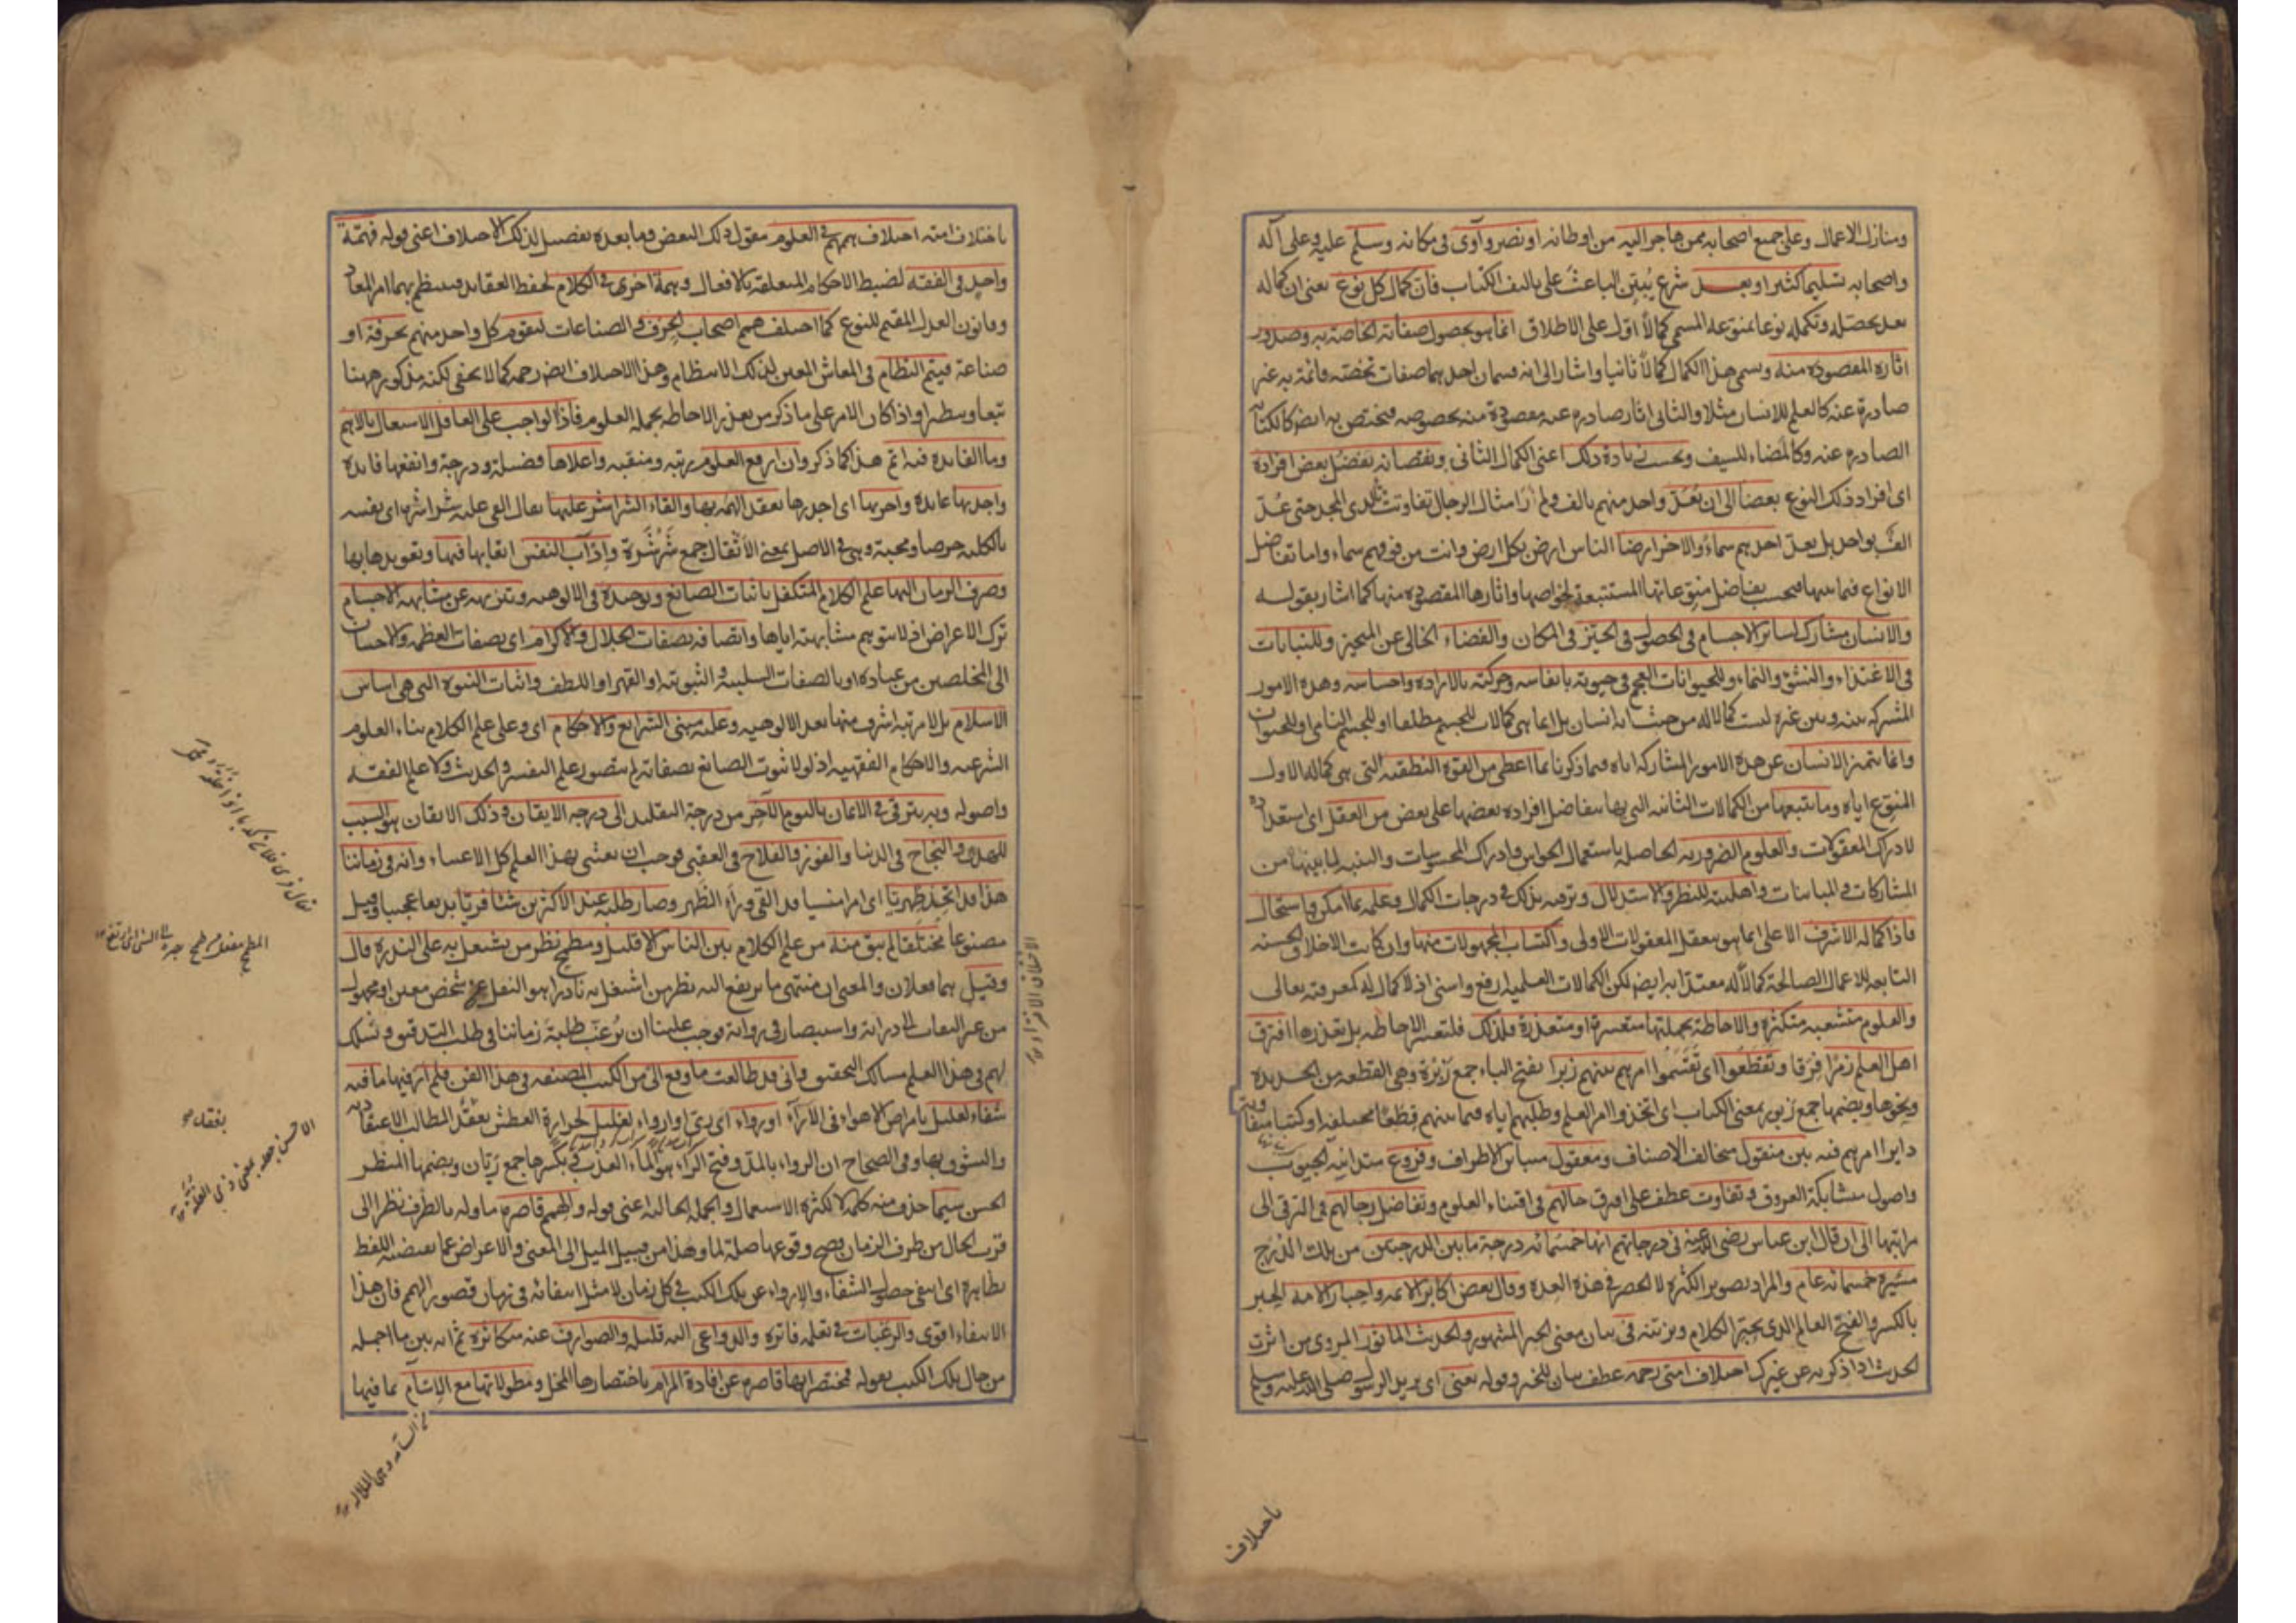 ومنازل الاعمال وعلى جميع اصحابه ممن هاجر اليه من اوطانه او نصر وآوى فى مكانه وسلم عليه وعلى آله
واصحابه تسليما كثيرا وبعد شرع يُبيّن الباعث على تاليف الكتاب فانّ كمال كل نوع يعنى ان كماله
بعد تحصله وتكمله نوعا بمنوعه المسمى كمالاً اوّل على الاطلاق انما هو بحصول صفاته الخاصة به وصدور
اثاره المقصودة منه ويسمى هذا الكمال كمالاً ثانيا واشار الى انه قسمان احدهما صفات تخصّه قائمة به غير
صادرة عنه كالعلم للانسان مثلا والثانى اثار صادرة عنه مقصودة منه بخصوصه فتختص به ايضا كالكتابة
الصادرة عنه وكالمضاء للسيف وبحسب زيادة ذلك اعنى الكمال الثانى ونقصانه يفضل بعض افراده
اى افراد ذلك النوع بعضا الى ان يُعدّ واحد منهم بالف ولم ار امثال الرجال تفاوتت لدى المجد حتى عُدّ
الف بواحد بل يعدّ احدهم سماءً والاخر ارضا الناس ارض بكل ارض وانت من فوقهم سماء واما تفاضل
الانواع فيما بينها فبحسب تفاضل منوعاتها المستتبعة لخواصها واثارها المقصودة منها كما اشار بقوله
والانسان مشارك لسائر الاجسام فى الحصول فى الحيّز فى المكان والفضاء الخالى عن المتحيز وللنباتات
فى الاغتذاء والنشؤ والنماء وللحيوانات العجم فى حيوته بانفاسه وحركته بالارادة واحساسه وهذه الامور
المشتركة بينه وبين غيره ليست كمالا له من حيث انه انسان بل انما هى كمالات للجسم مطلقا او للجسم النامى او للحيوان
وانما يتميز الانسان عن هذه الامور المشاركة اياه فيما ذكرنا بما اعطى من القوة النطقية التى هى كماله الاول
المنوع اياه وما يتبعها من الكمالات الثانية التى بها يتفاضل افراده بعضها على بعض من العقل اى استعداده
لادراك المعقولات والعلوم الضرورية الحاصلة باستعمال الحواس وادراك المحسوسات والتنبه لما بينها من
المشاركات والمباينات واهليته للنظر والاستدلال وترقيه بذلك فى درجات الكمال وعلمه بما امكن واستحال
فاذا كماله الاشرف الاعلى انما هو بتعقل المعقولات الاولى واكتساب المجهولات منها وان كانت الاخلاق الحسنة
التابعة للاعمال الصالحة كمالاً له معتدّا به ايضا لكن الكمالات العلمية ارفع واسنى اذ لا كمال له كمعرفته تعالى
والعلوم متشعبة متكثرة والاحاطة بجملتها متعسرة او متعذرة فلذلك فلتعسر الاحاطة بل تعذرها افترق
اهل العلم زمرا فِرَقا وتقطعوا اى تقسّموا امرهم بينهم زبرا بفتح الباء جمع زُبْرَة وهى القطعة من الحديد
ونحوها وبضمها جمع زبور بمعنى الكتاب اى اتخذوا امر العلم وطلبهم اياه فيما بينهم قِطَعًا مختلفة او كتبا متفاوتة
دايرا امرهم فيه بين منقول متخالف الاصناف ومعقول متباين الاطراف وفروع متدانية الجنوب
واصول متشابكة العروق وتفاوت عطف على افترق حالهم فى اقتناء العلوم وتفاضل رجالهم فى الترقى الى
مراتبها الى ان قال ابن عباس رضى الله عنه فى درجاتهم انها خمسمائة درجة ما بين الدرجتين من تلك الدرج
مسيرة خمسمائة عام والمراد تصوير الكثرة لا الحصر فى هذه العدة وقال بعض اكابر الائمة واحبار الامة الحبر
بالكسر والفتح العالم الذى يحبّر الكلام ويزينه فى بيان معنى الخبر المشهور والحديث الماثور المروى من اثرت
الحديث اذا ذكرته عن غيرك اختلاف امتى رحمة عطف بيان للخبر وقوله يعنى اى يريد الرسول صلى الله عليه وسلم
باختلاف
باختلاف امته اختلاف هممهم فى العلوم مقول ذلك البعض وما بعده تفصيل لذلك الاختلاف اعنى قوله فهمّة
واحد فى الفقه لضبط الاحكام المتعلقة بالافعال وهمة اخرى فى الكلام لحفظ العقايد فينتظم بهما امر المعاد
وقانون العدل المقيم للنوع كما اختلف همم اصحاب الحِرف والصناعات ليقوم كل واحد منهم بحرفة او
صناعة فيتم النظام فى المعاش المعين لذلك الانتظام وهذا الاختلاف ايضا رحمة كما لا يخفى لكنه مذكور ههنا
تبعا ونظيرا واذا كان الامر على ما ذكر من تعذر الاحاطة بجملة العلوم فاذا الواجب على العاقل الاشتغال بالاهم
وما الفائدة فيه اتم هذا كما ذكر وان ارفع العلوم مرتبة ومنقبة واعلاها فضيلة ودرجة وانفعها فايدة
واجداها عائدة واحريها اى اجدرها بعقد الهمة بها والقاء الشراشر عليها يقال القى عليه شراشره اى نفسه
بالكلية حرصا ومحبة وهى فى الاصل بمعنى الاثقال جمع شَرْشَرَة وادآب النفس اتعابها فيها وتعويدها بها
وصرف الزمان اليها علم الكلام المتكفل باثبات الصانع وتوحيده فى الالوهية وتنزيهه عن مشابهة الاجسام
ترك الاعراض اذ لا يتوهم مشابهته اياها واتصافه بصفات الجلال والاكرام اى بصفات العظمة والاحسان
الى المخلصين من عباده او بالصفات السلبية والثبوتية او القهر او اللطف واثبات النبوة التى هى اساس
الاسلام بل لا مرتبة اشرف منها بعد الالوهية وعليه مبنى الشرايع والاحكام اى وعلى علم الكلام بناء العلوم
الشرعية والاحكام الفقهية اذ لولا ثبوت الصانع بصفاته لم يتصور علم التفسير والحديث ولا علم الفقه
واصوله وبه يترقى فى الايمان باليوم الآخر من درجة التقليد الى درجة الايقان وذلك الايقان هو السبب
للهدى والنجاح فى الدنيا والفوز والفلاح فى العقبى فوجب ان يعتنى بهذا العلم كل الاعتناء وانه فى زماننا
هذا قد اتخذ ظهريّا اى امرا منسيا قد القى وراء الظهر وصار طلبه عند الاكثرين شيئا فريّا بديعا عجيبا وقيل
مصنوعا مختلقا لم يبق منه من علم الكلام بين الناس الا قليل ومطمح نظر من يشتغل به على الندرة قال
وقيل هما فعلان والمعنى ان منتهى ما يرتفع اليه نظر من اشتغل به نادرا هو النقل عن شخص معين او مجهول
من غير التفات الى دراية واستبصار فى رواية فوجب علينا ان نُرغّب طلبة زماننا فى طلب التدقيق ونسلك
لهم فى هذا العلم مسالك التحقيق وانى قد طالعت ما وقع الىّ من الكتب المصنفة فى هذا الفن فلم ار فيها ما فيه
شفاء لعليل بامراض الاهواء فى الآراء او رواء اى رىّ او ارواء لغليل لحرارة العطش بفقد المطالب الاعتقادية
والشوق بها وفى الصحاح ان الرواء بالمدّ وفتح الراء هو الماء العذب وبكسرها جمع ريّان وبضمها المنظر
الحسن سيما حذف منه كلمة لا لكثرة الاستعمال والجملة الحالية اعنى قوله والهمم قاصرة ماولة بالظرف نظرا الى
قرب الحال من ظرف الزمان فصح وقوعها صلة لما وهذا من قبيل الميل الى المعنى والاعراض عما يقتضيه اللفظ
بظاهره اى انتفى حصول الشفاء والارواء عن تلك الكتب فى كل زمان لا مثل انتفائه فى زمان قصور الهمم فان هذا
الانتفاء اقوى والرغبات فى تعلمه فاترة والدواعى اليه قليلة والصوارف عنه متكاثرة ثم انه بين ما اجمله
من حال تلك الكتب بقوله فمختصراتها قاصرة عن افادة المرام باختصارها المخل ومطولاتها مع الاسآم بما فيها